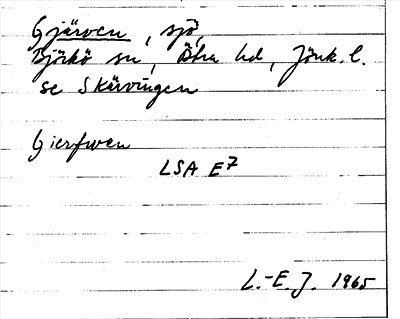 Gjärven, sjö,
Björkö sn, Östra hd, Jönk. l.
se Skärvingen
Gierfwen
LSA E7
L.-E. J. 1965